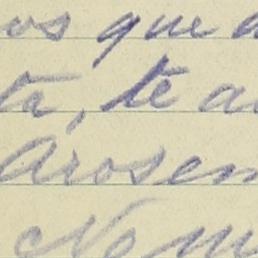 os que a
ta, te a
Arosem
Ne m